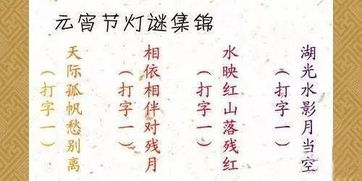 元宵节灯谜集锦
湖光水影月当空
（打字一）
水映红山落残红
（打字一）
相依相伴对残月
（打字一）
天际孤帆愁别离
（打字一）